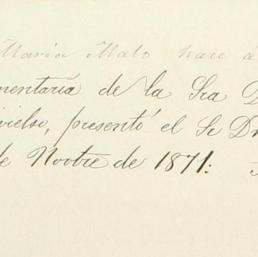 Maria Malo hace á
mentaría de la Sra D
vielso, presentó el Sr Dn
de Novbre de 1871: